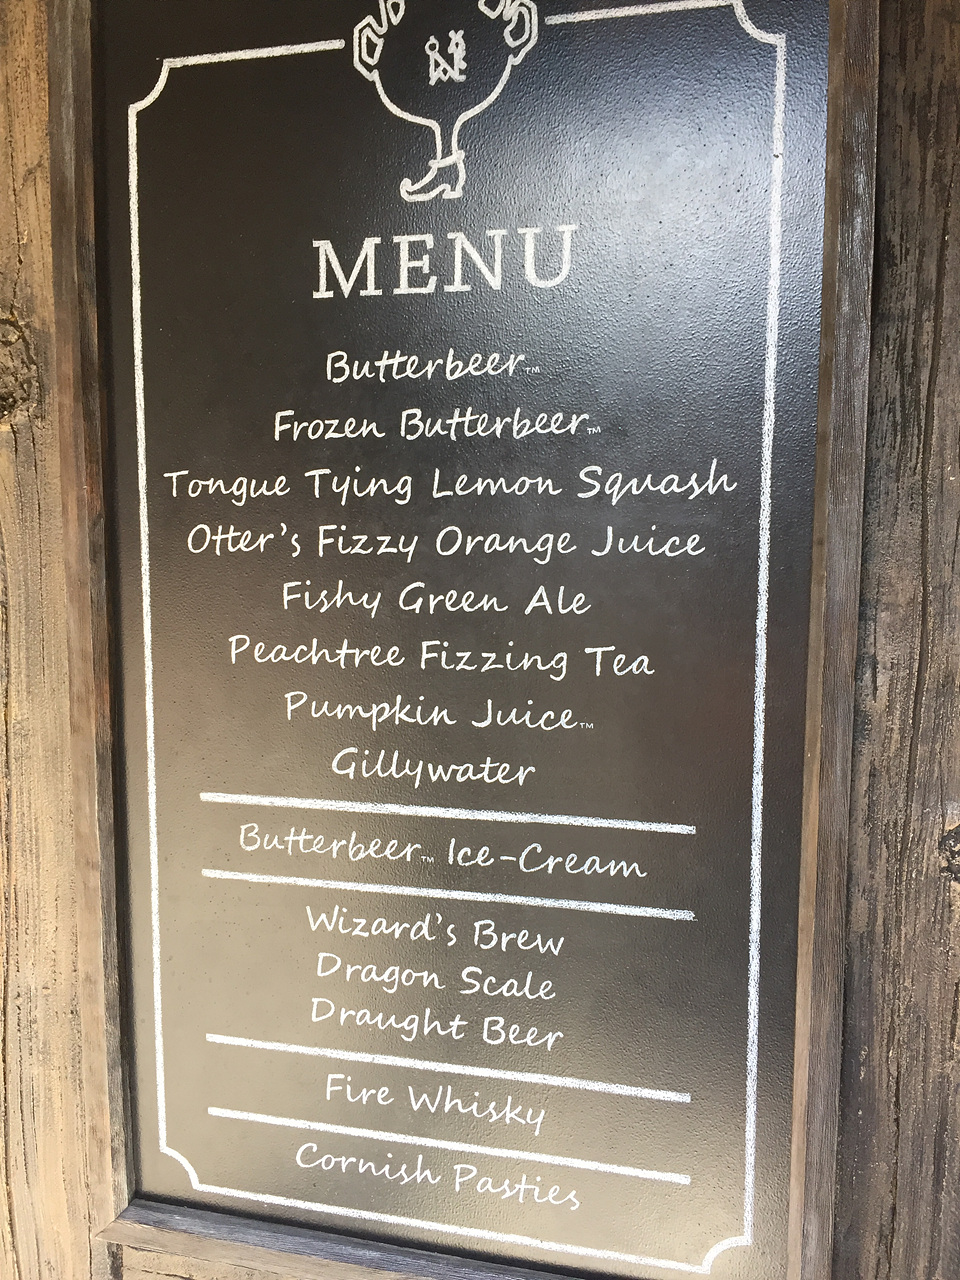 MENU
Butterbeer™
Frozen Butterbeer™
Tongue Tying Lemon Squash
Otter's Fizzy Orange Juice
Fishy Green Ale
Peachtree Fizzing Tea
Pumpkin Juice™
Gillywater
Butterbeer™ Ice-Cream
Wizard's Brew
Dragon Scale
Draught Beer
Fire Whisky
Cornish Pasties